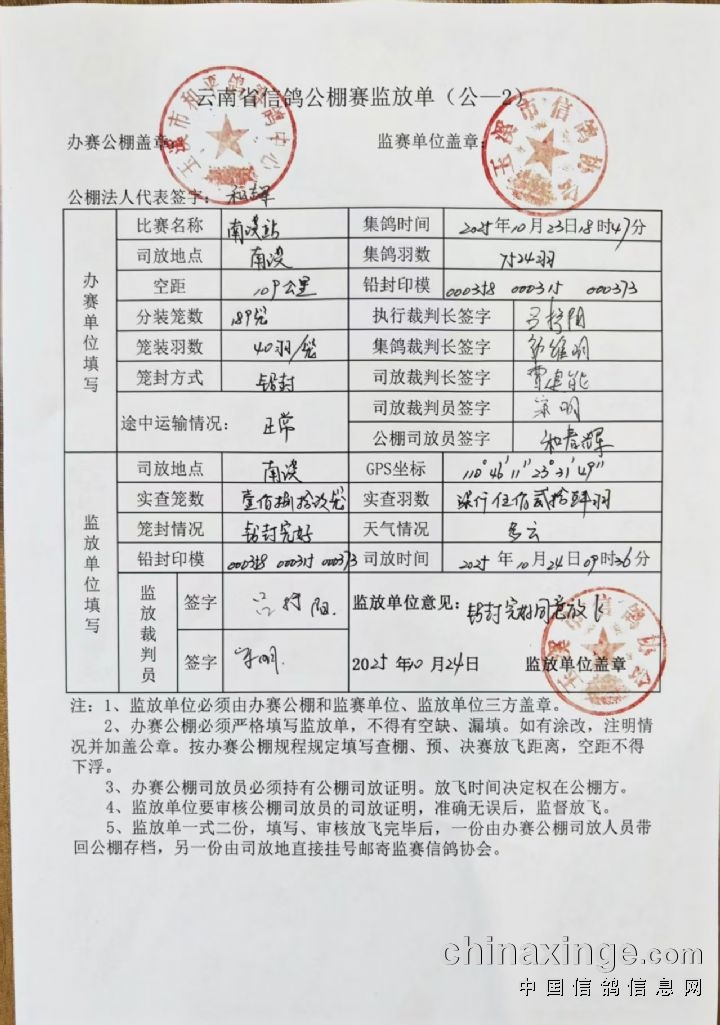 云南省信鸽公棚赛监放单（公—2）
办赛公棚盖章：
监赛单位盖章：
玉溪市信鸽协会
公棚法人代表签字：
办赛单位填写
比赛名称 南溪站 集鸽时间 2025年10月23日18时47分
司放地点 南溪 集鸽羽数 7524羽
空距 109公里 铅封印模 000358 000315 000373
分装笼数 189笼 执行裁判长签字
笼装羽数 40羽/笼 集鸽裁判长签字
笼封方式 铅封 司放裁判长签字
途中运输情况： 正常 司放裁判员签字 宋明
公棚司放员签字 和春辉
监放单位填写
司放地点 南溪 GPS坐标
实查笼数 壹佰捌拾玖笼 实查羽数 柒仟伍佰贰拾肆羽
笼封情况 铅封完好 天气情况 多云
铅封印模 000358 000315 000373 司放时间 2025年10月24日09时36分
监放裁判员 签字 监放单位意见： 铅封完好同意放飞
签字 宋明 2025年10月24日 监放单位盖章
玉溪市信鸽协会
注：1、监放单位必须由办赛公棚和监赛单位、监放单位三方盖章。
2、办赛公棚必须严格填写监放单，不得有空缺、漏填。如有涂改，注明情
况并加盖公章。按办赛公棚规程规定填写查棚、预、决赛放飞距离，空距不得
下浮。
3、办赛公棚司放员必须持有公棚司放证明。放飞时间决定权在公棚方。
4、监放单位要审核公棚司放员的司放证明，准确无误后，监督放飞。
5、监放单一式二份，填写、审核放飞完毕后，一份由办赛公棚司放人员带
回公棚存档，另一份由司放地直接挂号邮寄监赛信鸽协会。
chinaxinge.com
中国信鸽信息网